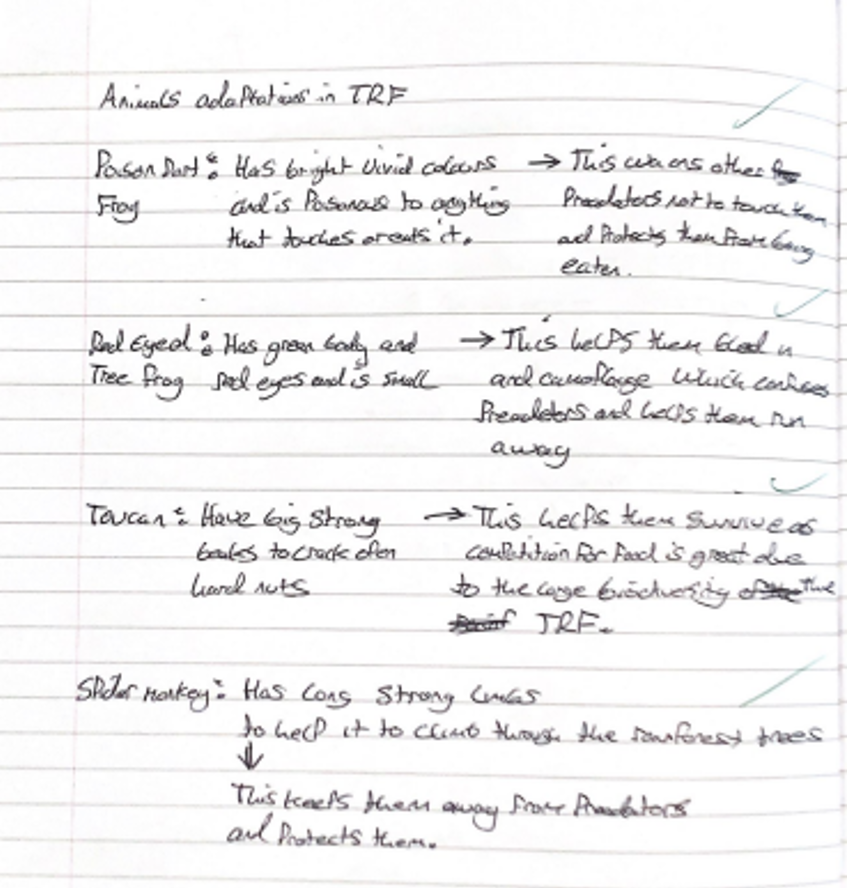 Animals adaptations in TRF
Poison Dart : Has bright vivid colours → This warns other
Frog and is Poisonous to anything Preadators not to touch them
that touches or eats it. and Protects them from being
eaten.
Red Eyed : Has green body and → This helps them blend in
Tree frog red eyes and is small and camoflauge which confuses
Preadators and helps them run
away
Toucan : Have big strong → This helps them survive as
beaks to crack open competition for food is great due
hard nuts to the large biodiversity of the
TRF.
Spider monkey : Has long strong limbs
to help it to climb through the rainforest trees
↓
This keeps them away from Preadators
and Protects them.